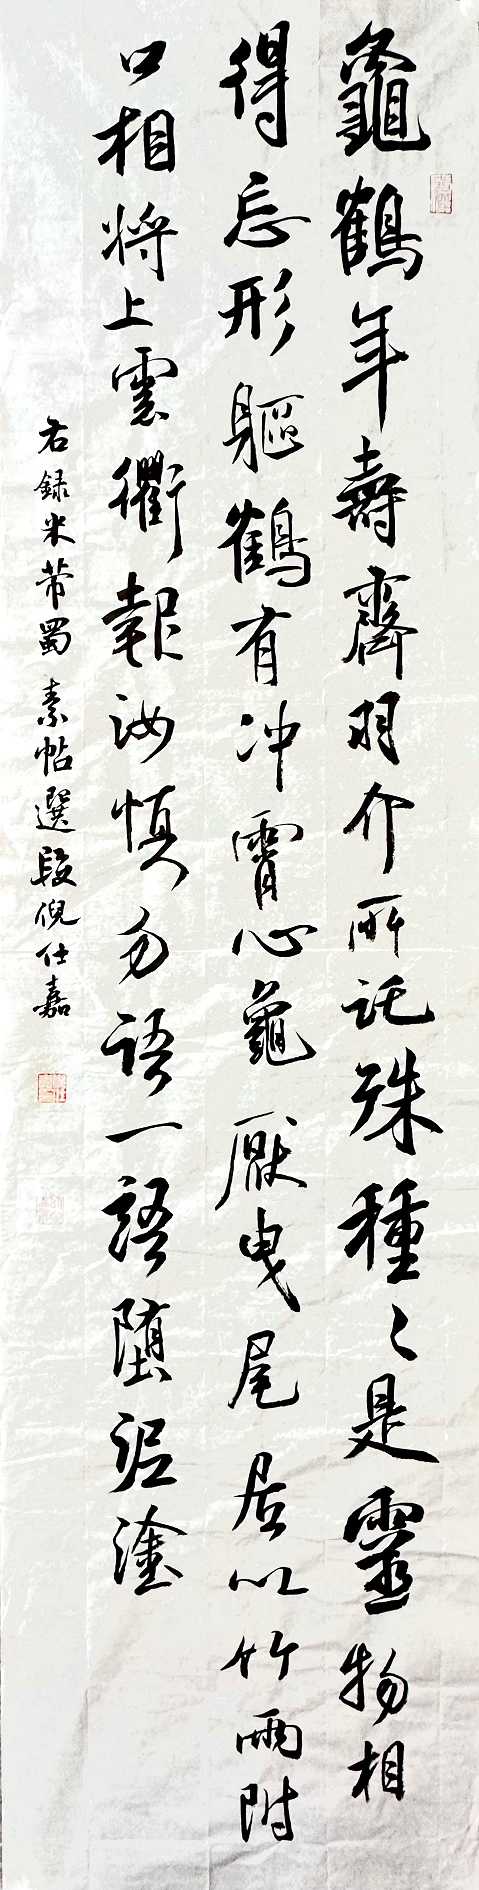 龜鶴年壽齊羽介所託殊種種是靈物相
得忘形軀鶴有冲霄心龜厭曳尾居以竹兩附
口相將上雲衢報汝慎勿語一語墮泥塗
右録米芾蜀素帖選段倪仕嘉